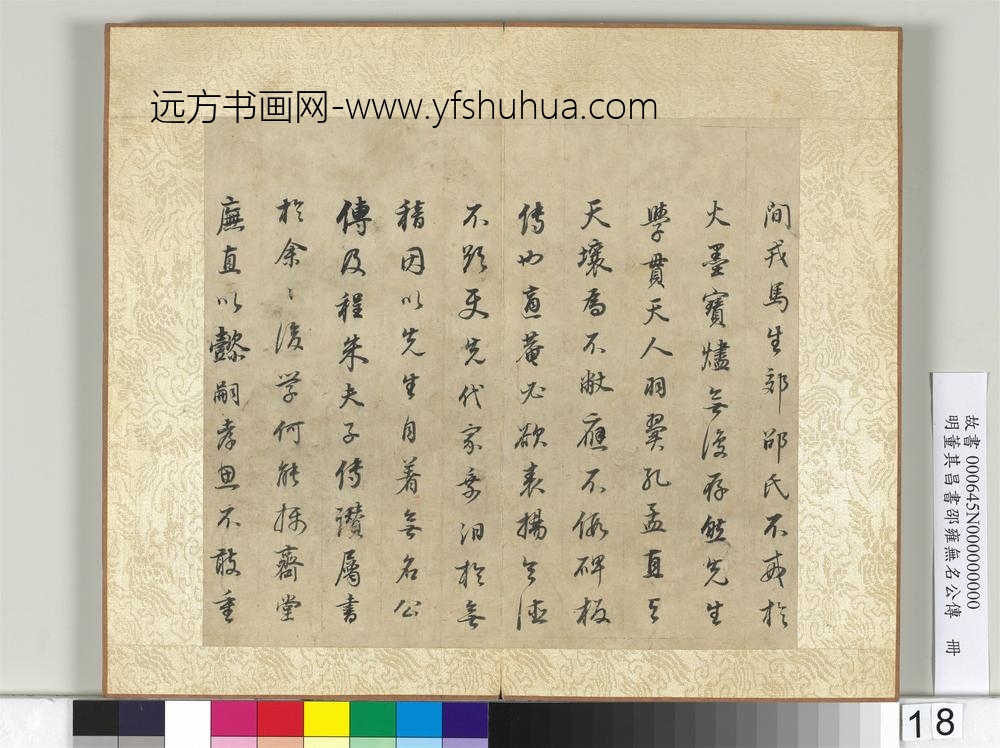 远方书画网-www.yfshuhua.com
間戎馬生郊邵氏不戒於
火墨寶燼無復存然先生
學貫天人羽翼孔孟直與
天壤為不敝應不假碑板
傳也蓭必欲表揚令德
不能更先代家乘汨於無
稽因以先生自著無名公
傳及程朱夫子傳讚屬書
於余〻後学何能撫齋堂
廡直以懿嗣孝思不敢重
故書 000645N000000000
明董其昌書邵雍無名公傳 冊
18